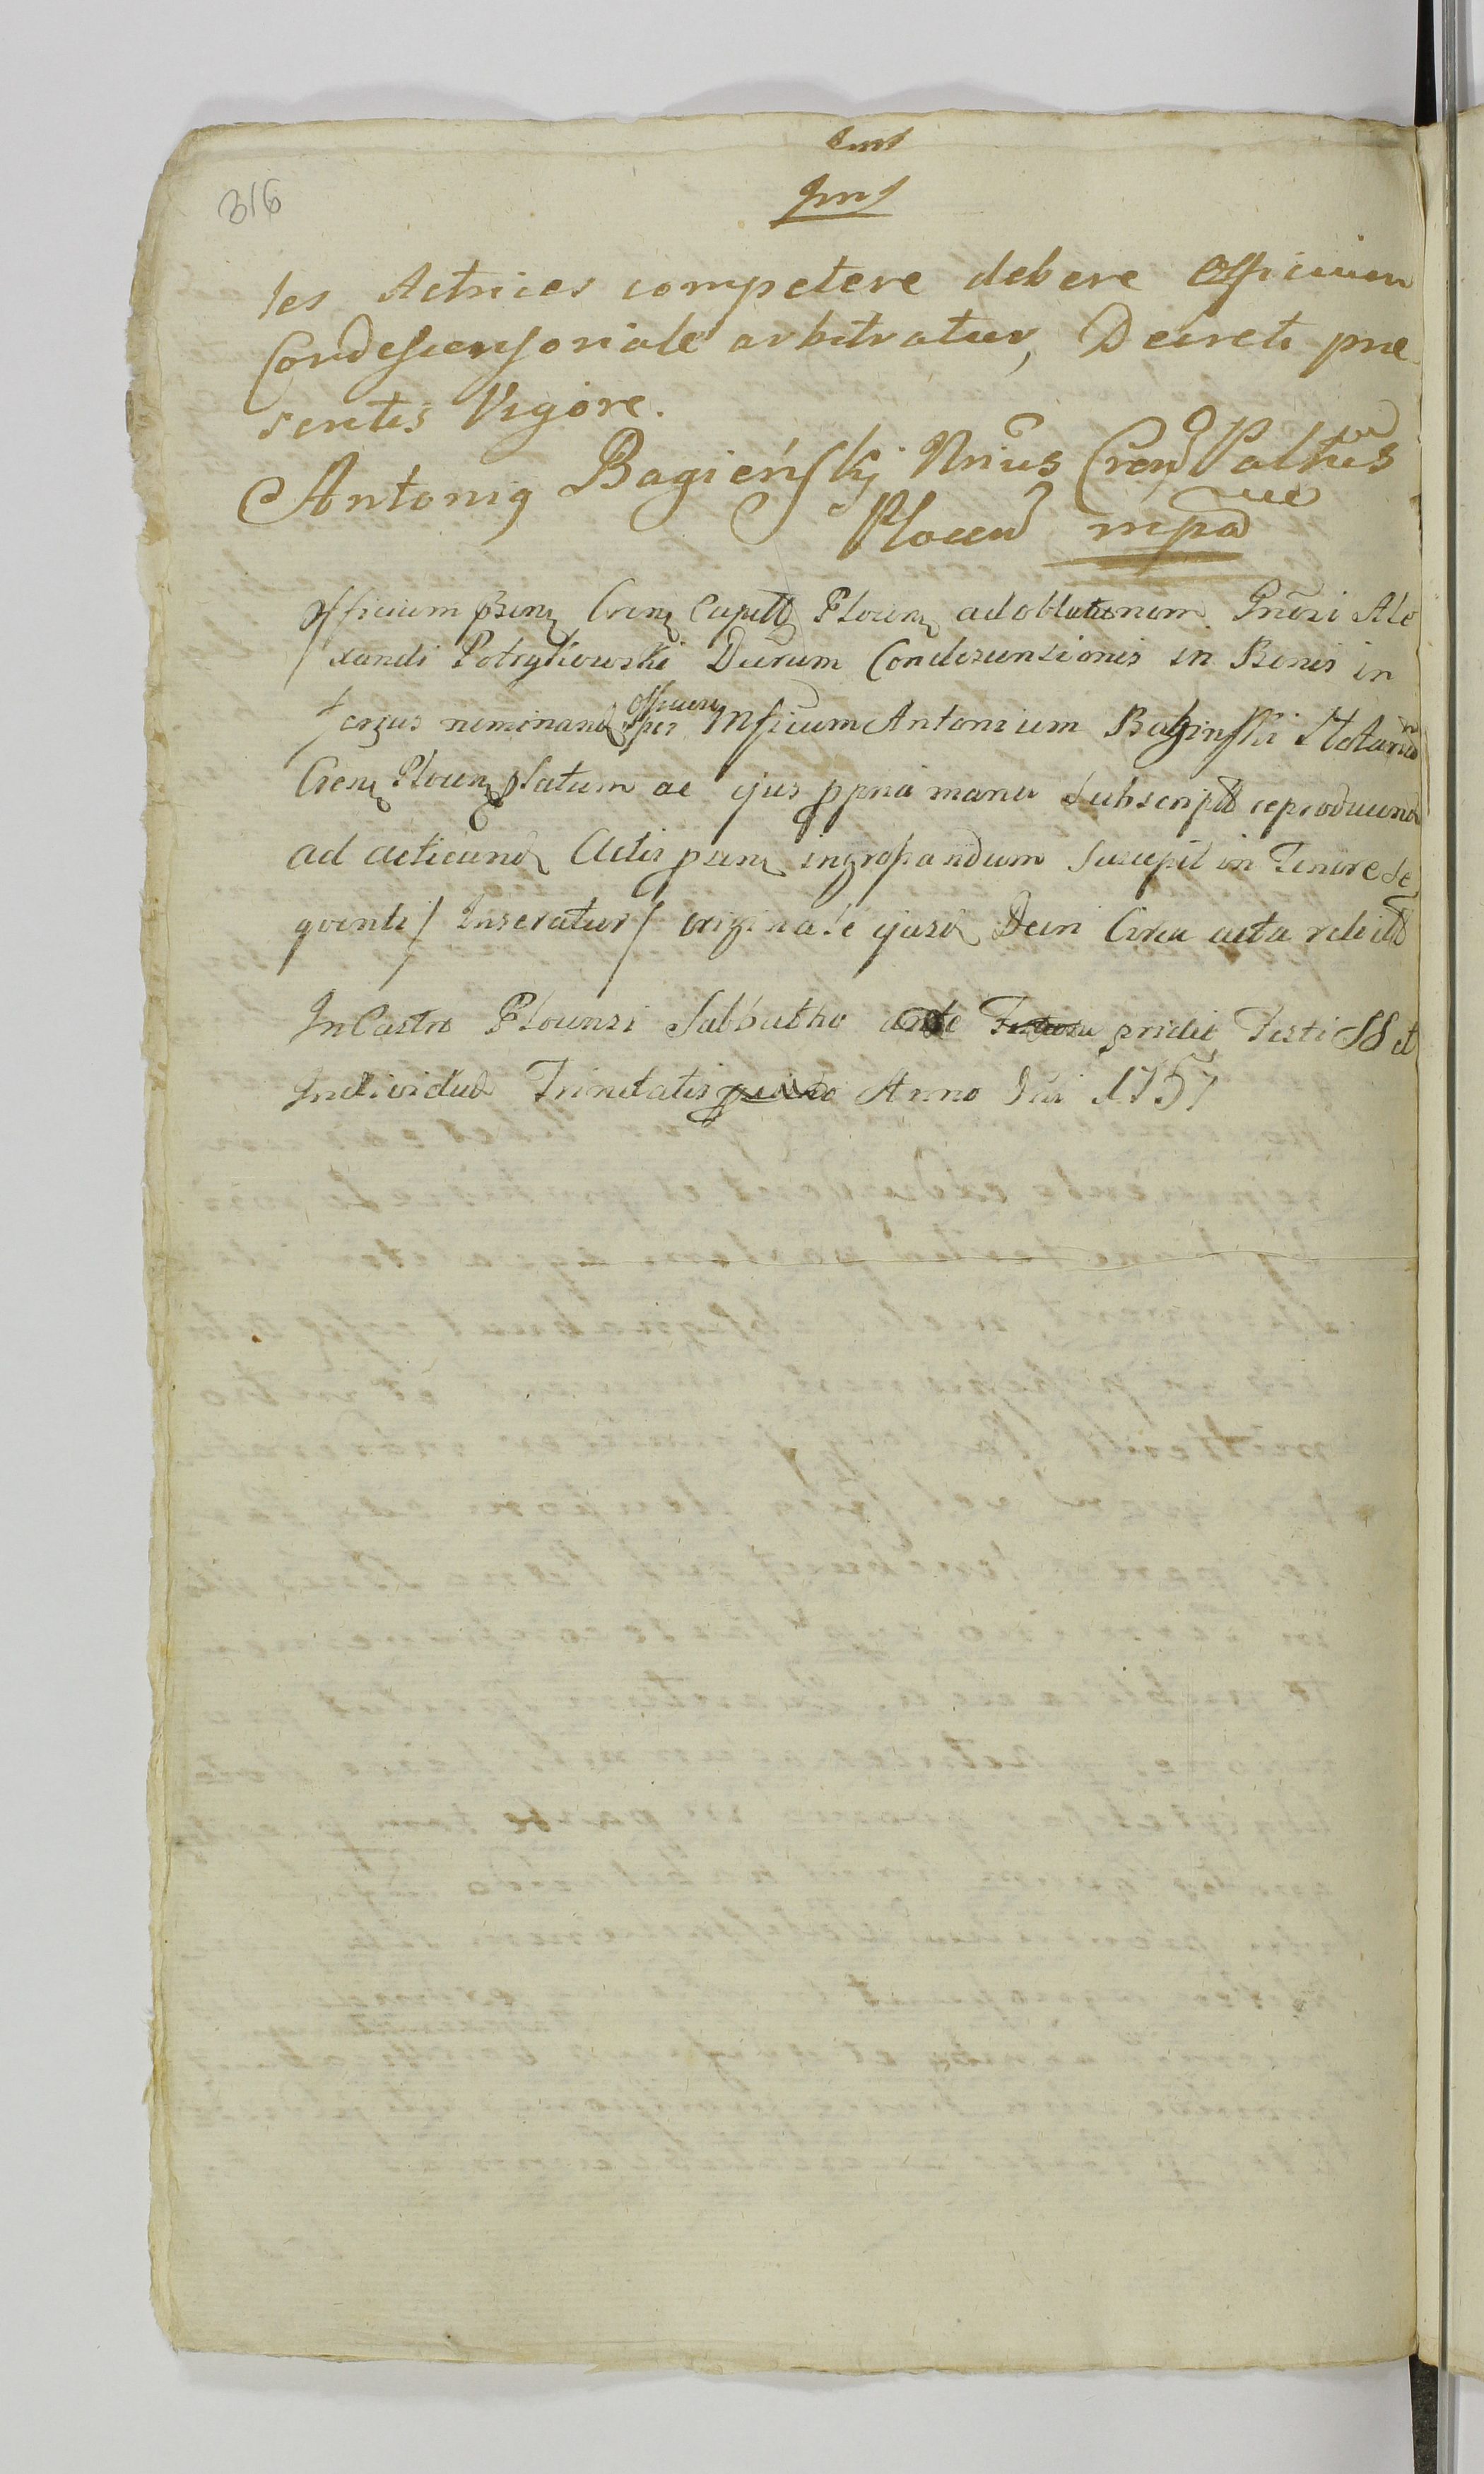 316
les Actrices competere debere Officium
Condescensoriale arbitratur, Decreti prae
sentis Vigore.
Antonig Bagieńskj Nrius Cren Palttus
Plocen mpa
Officium psens Crens Capitt Plocens ad oblationem Gnosi Ale
xandi Potrykowski Decrum Condescensionis in Bonis in
ferius neminand officium per Mficum Antonium Baginski Notarium
Crens Plocens platum ac ejus ppria manu Subscript reproducend
ad acticand Actis psens ingrossandum Suscepit in Tenore se
quenti / Inseratur / originale ejusd Decri Circa acta relictt
In Castro Plocensi Sabbatho ante pridie Festi SS et
Individuae Trinitatis Anno Dni 1757